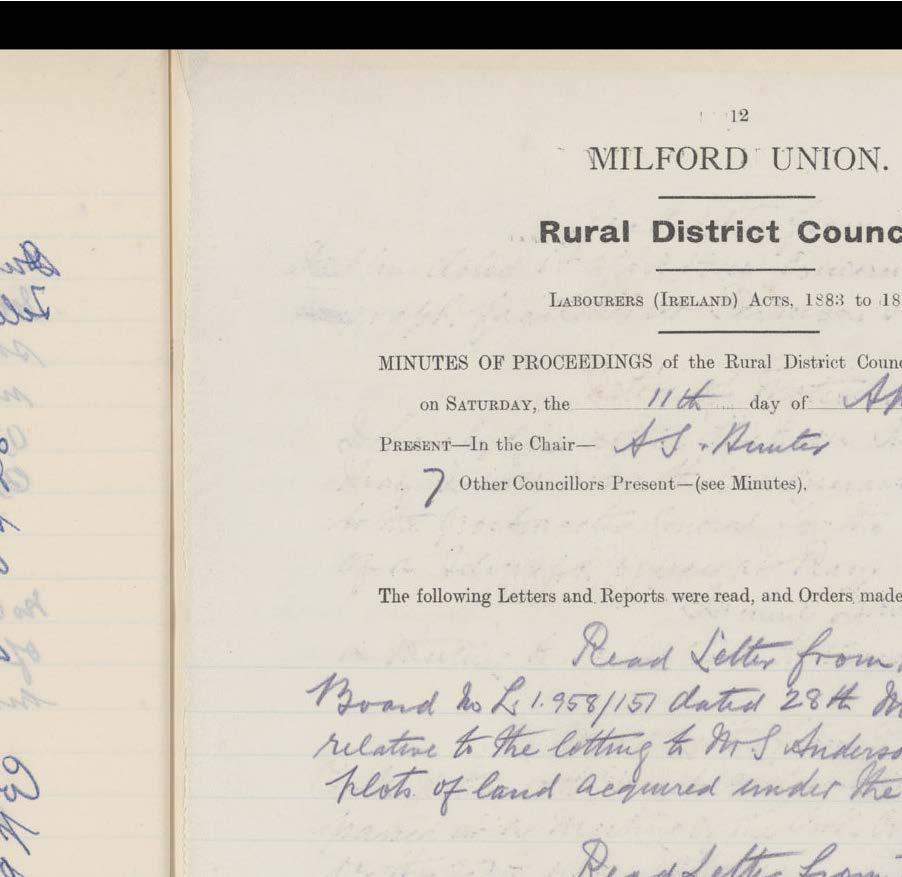 12
MILFORD UNION.
Rural District Counc
LABOURERS (IRELAND) ACTS, 1883 to 18
MINUTES OF PROCEEDINGS of the Rural District Counc
on SATURDAY, the 11th day of Ap
PRESENT—In the Chair— A S. Hunter
7 Other Councillors Present—(see Minutes).
The following Letters and Reports were read, and Orders made
Read Letter from
Board No L. 1.958/151 dated 28th M
relative to the letting to Mr S Anderso
plots of land acquired under the
Read Letter from